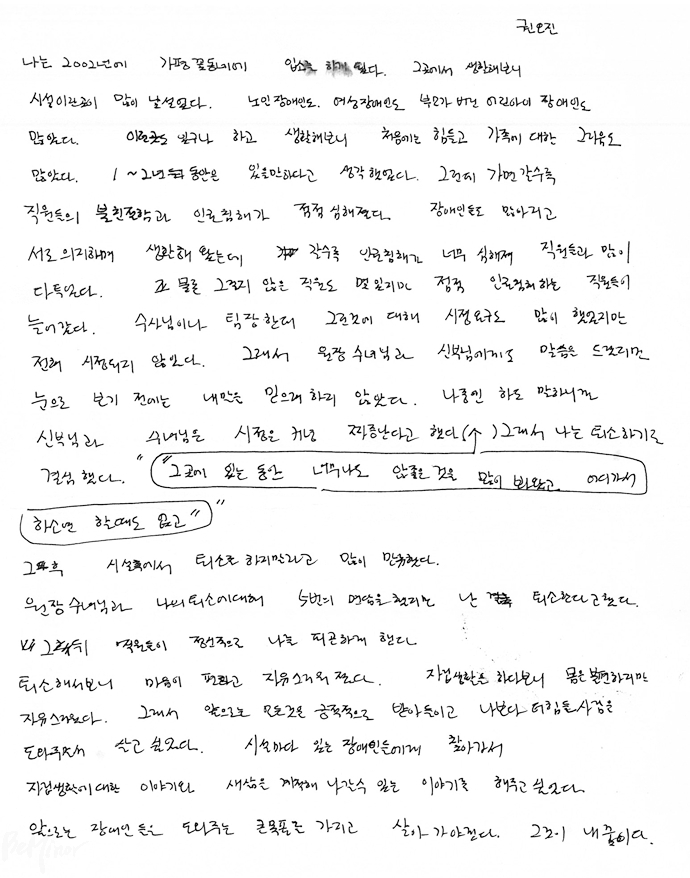 권오진
나는 2002년에 가평꽃동네에 입소를 하게 됬다. 그곳에서 생활해보니
시설이란곳이 많이 낯설었다. 노인장애인도. 여성장애인도 부모가 버린 어린아이 장애인도
많았다. 이런곳도 있구나 하고 생활해보니 처음에는 힘들고 가족에 대한 그리움도
많았다. 1~2년 동안은 있을만하다고 생각했었다. 그런데 가면갈수록
직원들의 불친절함과 인권침해가 점점 심해졌다. 장애인들도 많아지고
서로 의지하며 생활해 왔는데 갈수록 인권침해가 너무 심해져 직원들과 많이
다투었다. 물론 그렇지 않은 직원도 몇 있지만 점점 인권침해하는 직원들이
늘어갔다. 수사님이나 팀장한테 그런것에 대해 시정요구도 많이 했었지만
전혀 시정되지 않았다. 그래서 원장 수녀님과 신부님에게도 말씀은 드렸지만
눈으로 보기 전에는 내말은 믿으려 하지 않았다. 나중엔 하도 말하니까
신부님과 수녀님은 시정은 커녕 짜증난다고 했다(↑) 그래서 나는 퇴소하기로
결심했다. "그곳에 있는 동안 너무나도 않좋은것을 많이 봐왔고 어디가서
하소연 할때도 없고"
그후 시설측에서 퇴소를 하지말라고 많이 만류했다.
원장수녀님과 나의퇴소에대해 5번의 면담을 했지만 난 퇴소한다고했다.
그뒤 직원들이 정신적으로 나를 피곤하게 했다
퇴소해서보니 마음이 편하고 자유스러워 졌다. 자립생활을 하다보니 몸은불편하지만
자유스러웠다. 그래서 앞으로는 모든것을 긍정적으로 받아들이고 나보다 더힘든사람을
도와주면서 살고 싶었다. 시설마다 있는 장애인들에게 찾아가서
자립생활에대한 이야기와 세상을 개척해 나갈수 있는 이야기를 해주고 싶었다.
앞으로는 장애인들은 도와주는 큰목표를 가지고 살아가야겠다. 그것이 내 꿈이다.